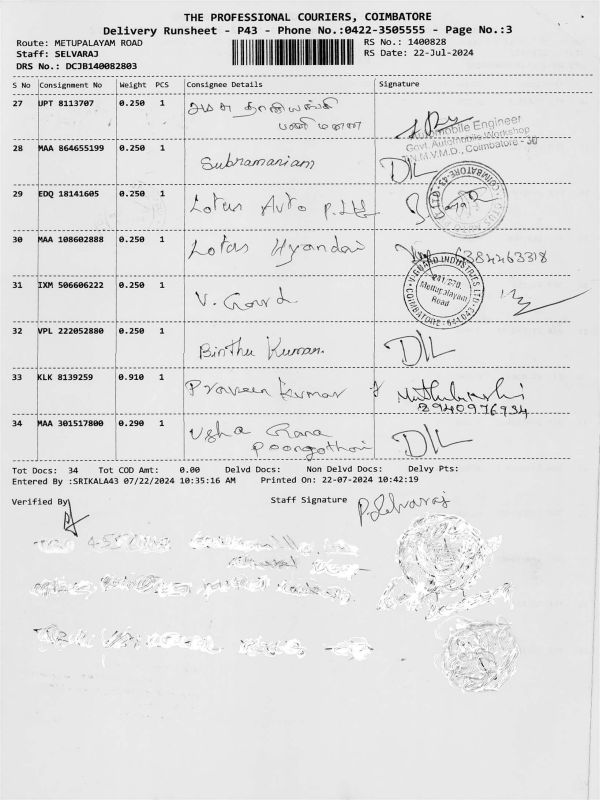 THE PROFESSIONAL COURIERS, COIMBATORE
Delivery Runsheet - P43 - Phone No.:0422-3505555 - Page No.:3
Route: METUPALAYAM ROAD RS No.: 1400828
Staff: SELVARAJ RS Date: 22-Jul-2024
DRS No.: DCJB140082803
S No Consignment No Weight PCS Consignee Details Signature
27 UPT 8113707 0.250 1
Automobile Engineer
Govt. Automobile Workshop
T.N.M.V.M.D., Coimbatore - 30
28 MAA 864655199 0.250 1 Subramaniam D/L
29 EDQ 18141605 0.250 1 Lotus Auto P. Ltd
30 MAA 108602888 0.250 1 Lotus Hyundai 6384463318
V-GUARD INDUSTRIES LTD.
Mettupalayam
Road
COIMBATORE - 641 043
31 IXM 506606222 0.250 1 V. Gourd
32 VPL 222052880 0.250 1 Binthu Kumar. D/L
33 KLK 8139259 0.910 1 Praveen Kumar
2940976934
34 MAA 301517800 0.290 1 Usha Rana D/L
Poongothai
Tot Docs: 34 Tot COD Amt: 0.00 Delvd Docs: Non Delvd Docs: Delvy Pts:
Entered By :SRIKALA43 07/22/2024 10:35:16 AM Printed On: 22-07-2024 10:42:19
Verified By Staff Signature P. Selvaraj